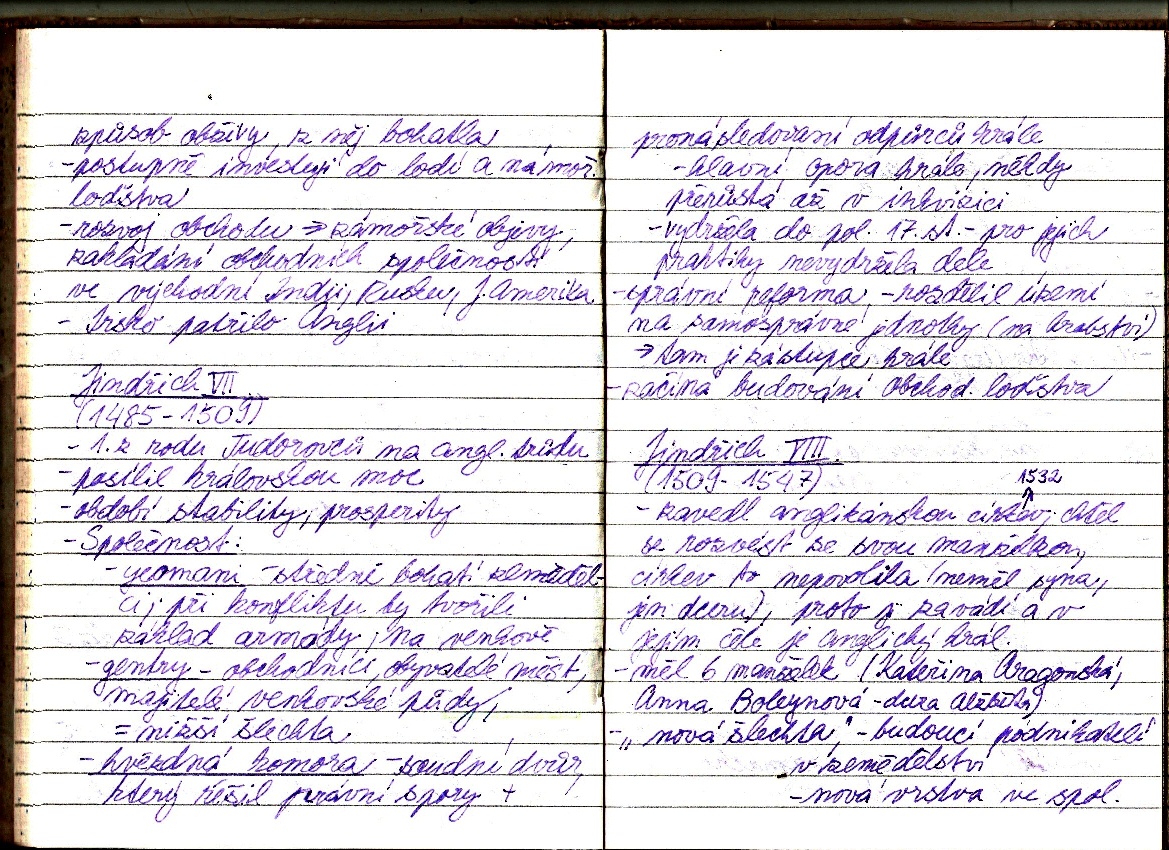 způsob obživy, z něj bohatla
- postupně investují do lodí a námoř.
loďstva
- rozvoj obchodu ⇒ zámořské objevy,
zakládání obchodních společností
ve východní Indii, Rusku, J. Amerika
- Irsko patřilo Anglii
Jindřich VII
(1485 - 1509)
- 1. z rodu Tudorovců na angl. trůnu
- posílil královskou moc
- období stability, prosperity
- Společnost:
- yeomani - středně bohatí zeměděl-
ci, při konfliktu by tvořili
základ armády, na venkově
- gentry - obchodníci, obyvatelé měst,
majitelé venkovské půdy,
= nižší šlechta
- hvězdná komora - soudní dvůr,
který řešil právní spory +
pronásledování odpůrců krále
- hlavní opora krále, někdy
přerůstá až v inkvizici
- vydržela do pol. 17. st. - pro jejich
praktiky nevydržela déle
- správní reforma, - rozdělil území
na samosprávné jednotky (na hrabství)
⇒ tam je zástupce krále
- začíná budování obchod. loďstva
Jindřich VIII
(1509 - 1547)
1532
- zavedl anglikánskou církev, chtěl
se rozvést se svou manželkou,
církev to nepovolila (neměl syna,
jen dceru), proto ji zavádí a v
jejím čele je anglický král
- měl 6 manželek (Kateřina Aragonská,
Anna Boleynová - dcera Alžběta)
- „nová šlechta" - budoucí podnikatelé
v zemědělství
- nová vrstva ve spol.